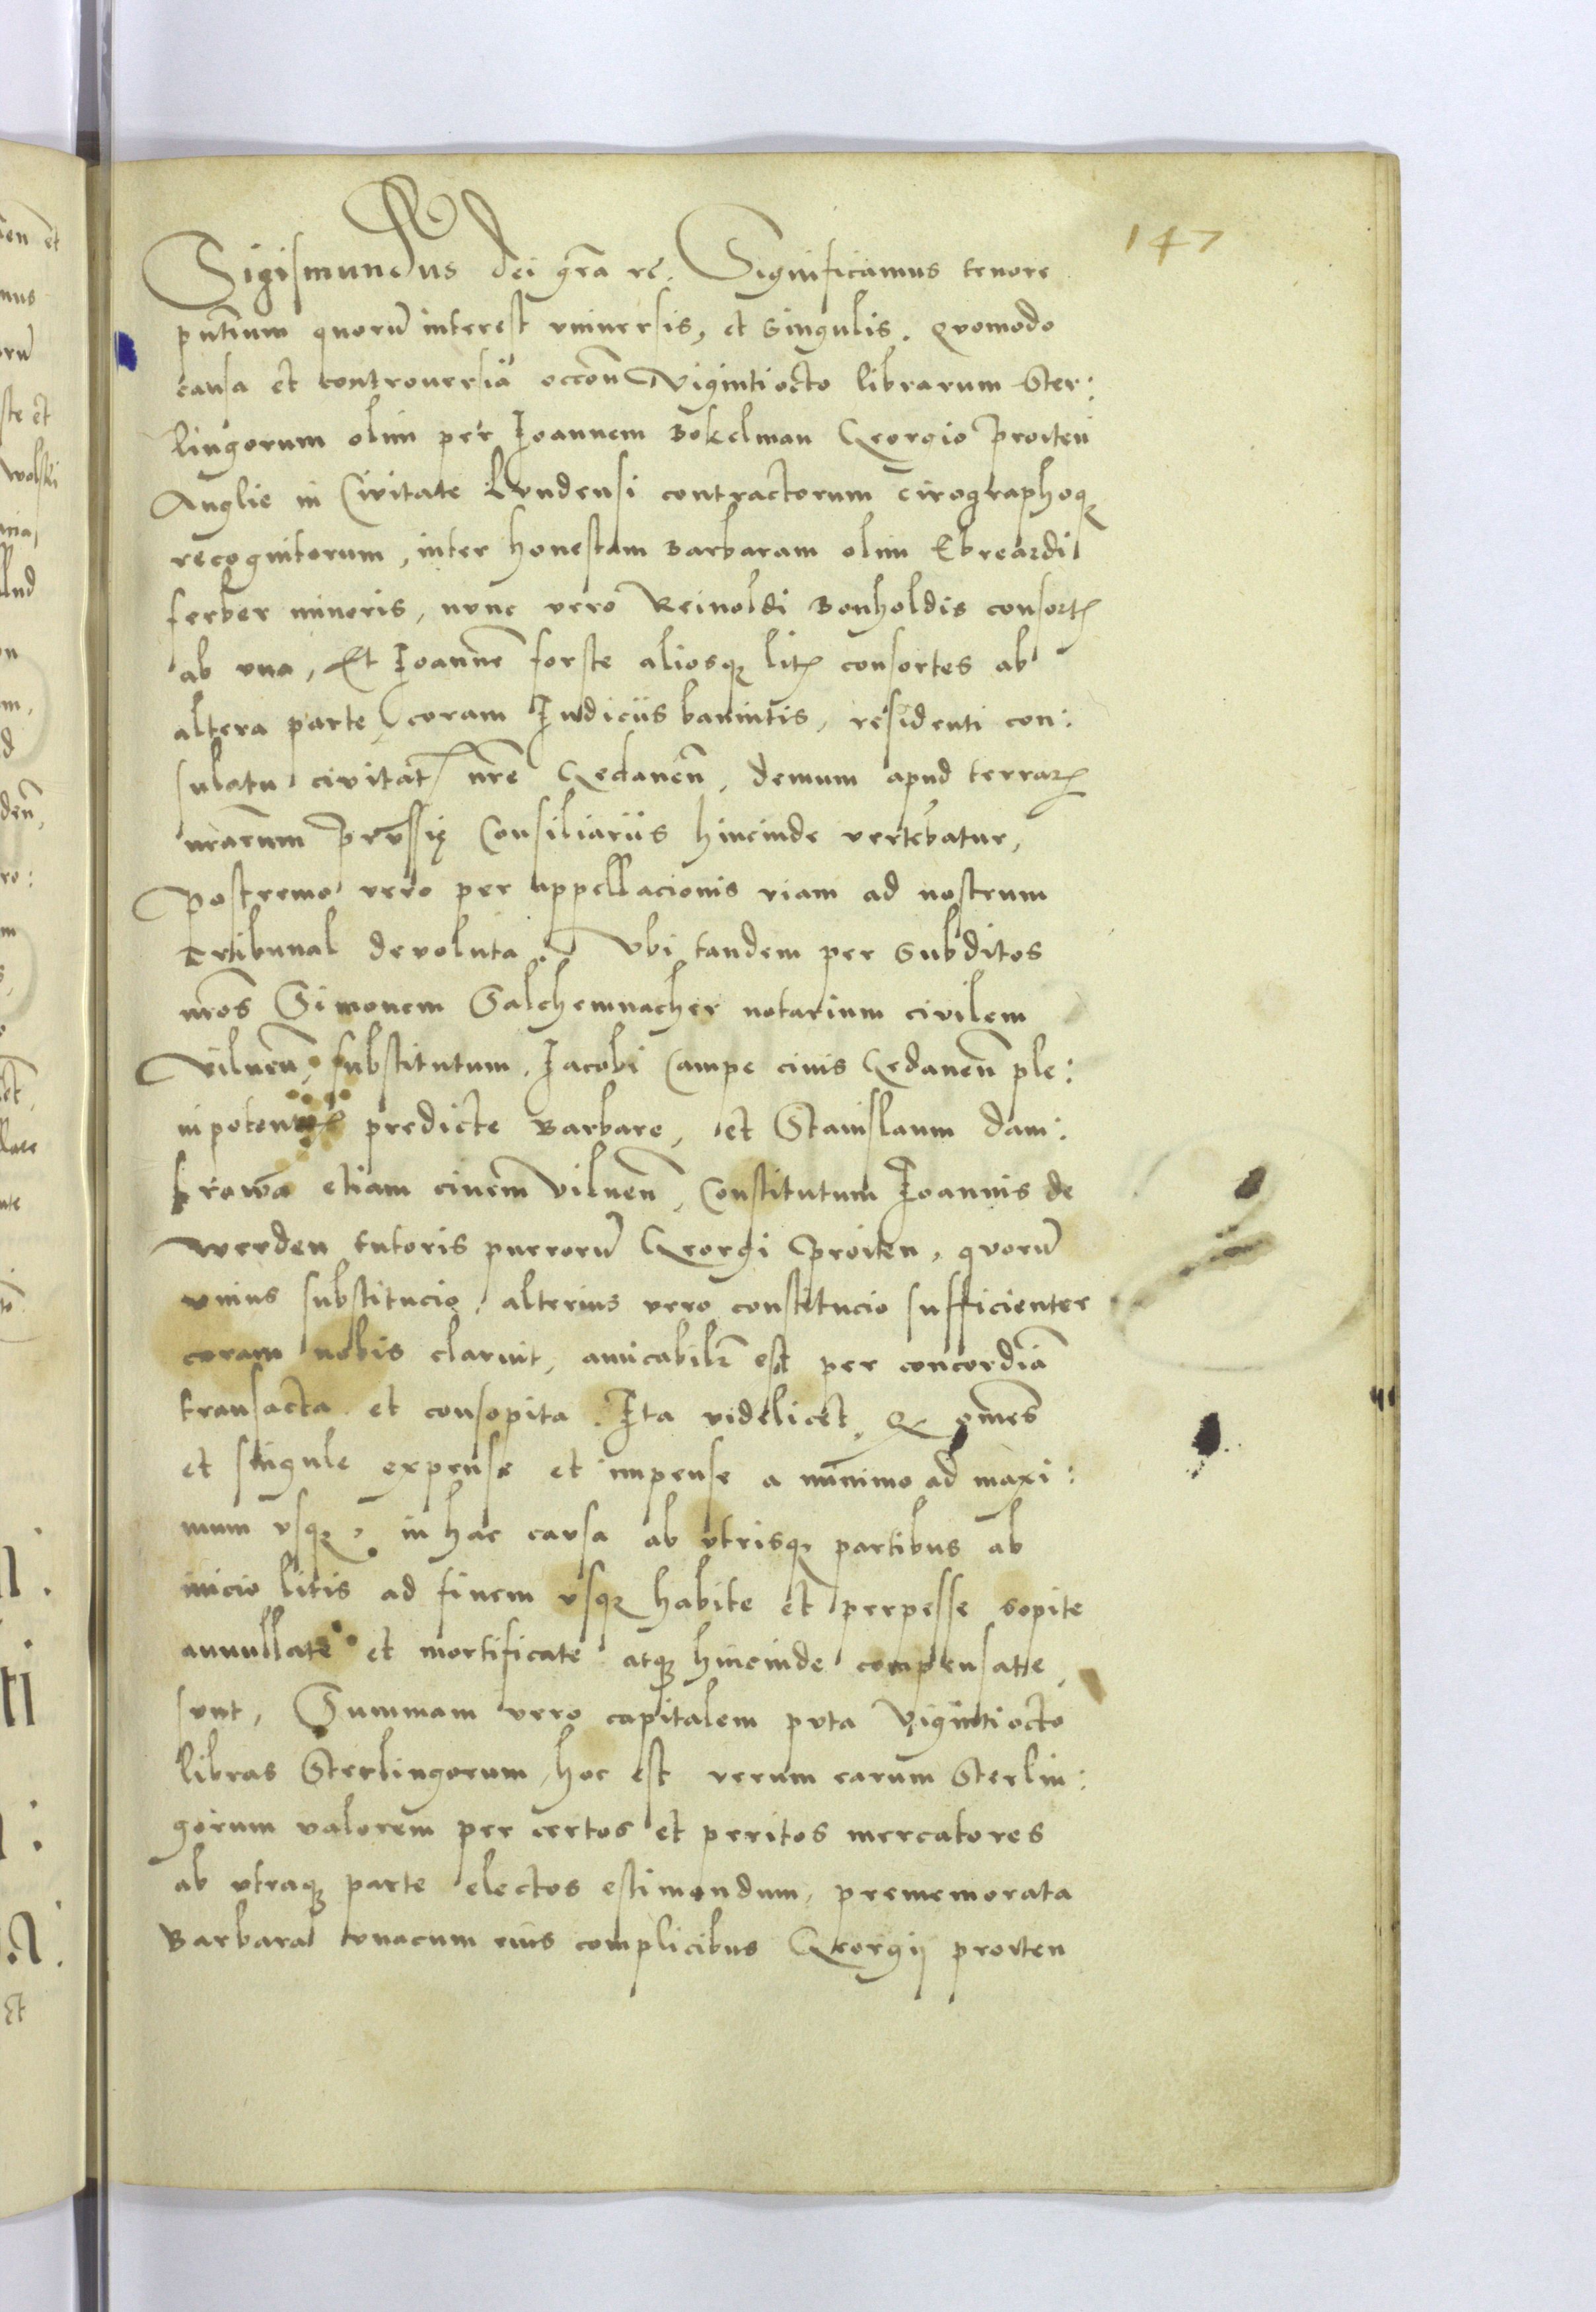 147
Sigismundus dei gr̄a rē. Significamus tenore
pn̄tium quorū interest vniuersis, et singulis. quomodo
causa et controuersia occ̄one Vigintiocto librarum Ster:
lingorum olim per Ioannem Bokelman Georgio Proiten
Anglie in Civitate Lundensi contractorum cirographoq3
recognitorum, inter honestam Barbaram olim Ebreardi
ferber minoris, nunc vero Reinoldi Bonholdis consort
ab una, Et Ioannē forste aliosq3 lit consortes ab
altera parte, coram Iudiciis banintis, residenti con:
sulatu civitat nr̄e Gedanen̄, demum apud terrar
nr̄arum Prussię Consiliariis hincinde vertebatur,
Postremo vero per appellacionis viam ad nostrum
tribunal devoluta. Vbi tandem per subditos
nr̄os Simonem Salchemnacher notarium civilem
Vilnen̄, substitutum, Iacobi Campe civis Gedanen̄ ple:
nipoten predicte Barbare, et Stanislaum dam:
browa etiam civem Vilnen̄, Constitutum Ioannis de
werden tutoris puerorū Georgi Proiten, quorū
unius substitucio, alterius vero constitucio sufficienter
coram nobis claruit, amicabilr̄ est per concordiā
transacta et consopita. Ita videlicet, q om̄es
et singule expense et impense a minimo ad maxi:
mum usq3, in hac causa ab utrisq3 partibus ab
inicio litis ad finem usq3 habite et perpesse sopite
annullate et mortificate atq3 hincinde compensate
sunt, Summam vero capitalem puta Vigintiocto
libras Sterlingorum, hoc est verum earum Sterlin:
gorum valorem per certos et peritos mercatores
ab utraq3 parte electos estimandum, prememorata
Barbara unacum eius complicibus Georgij proiten